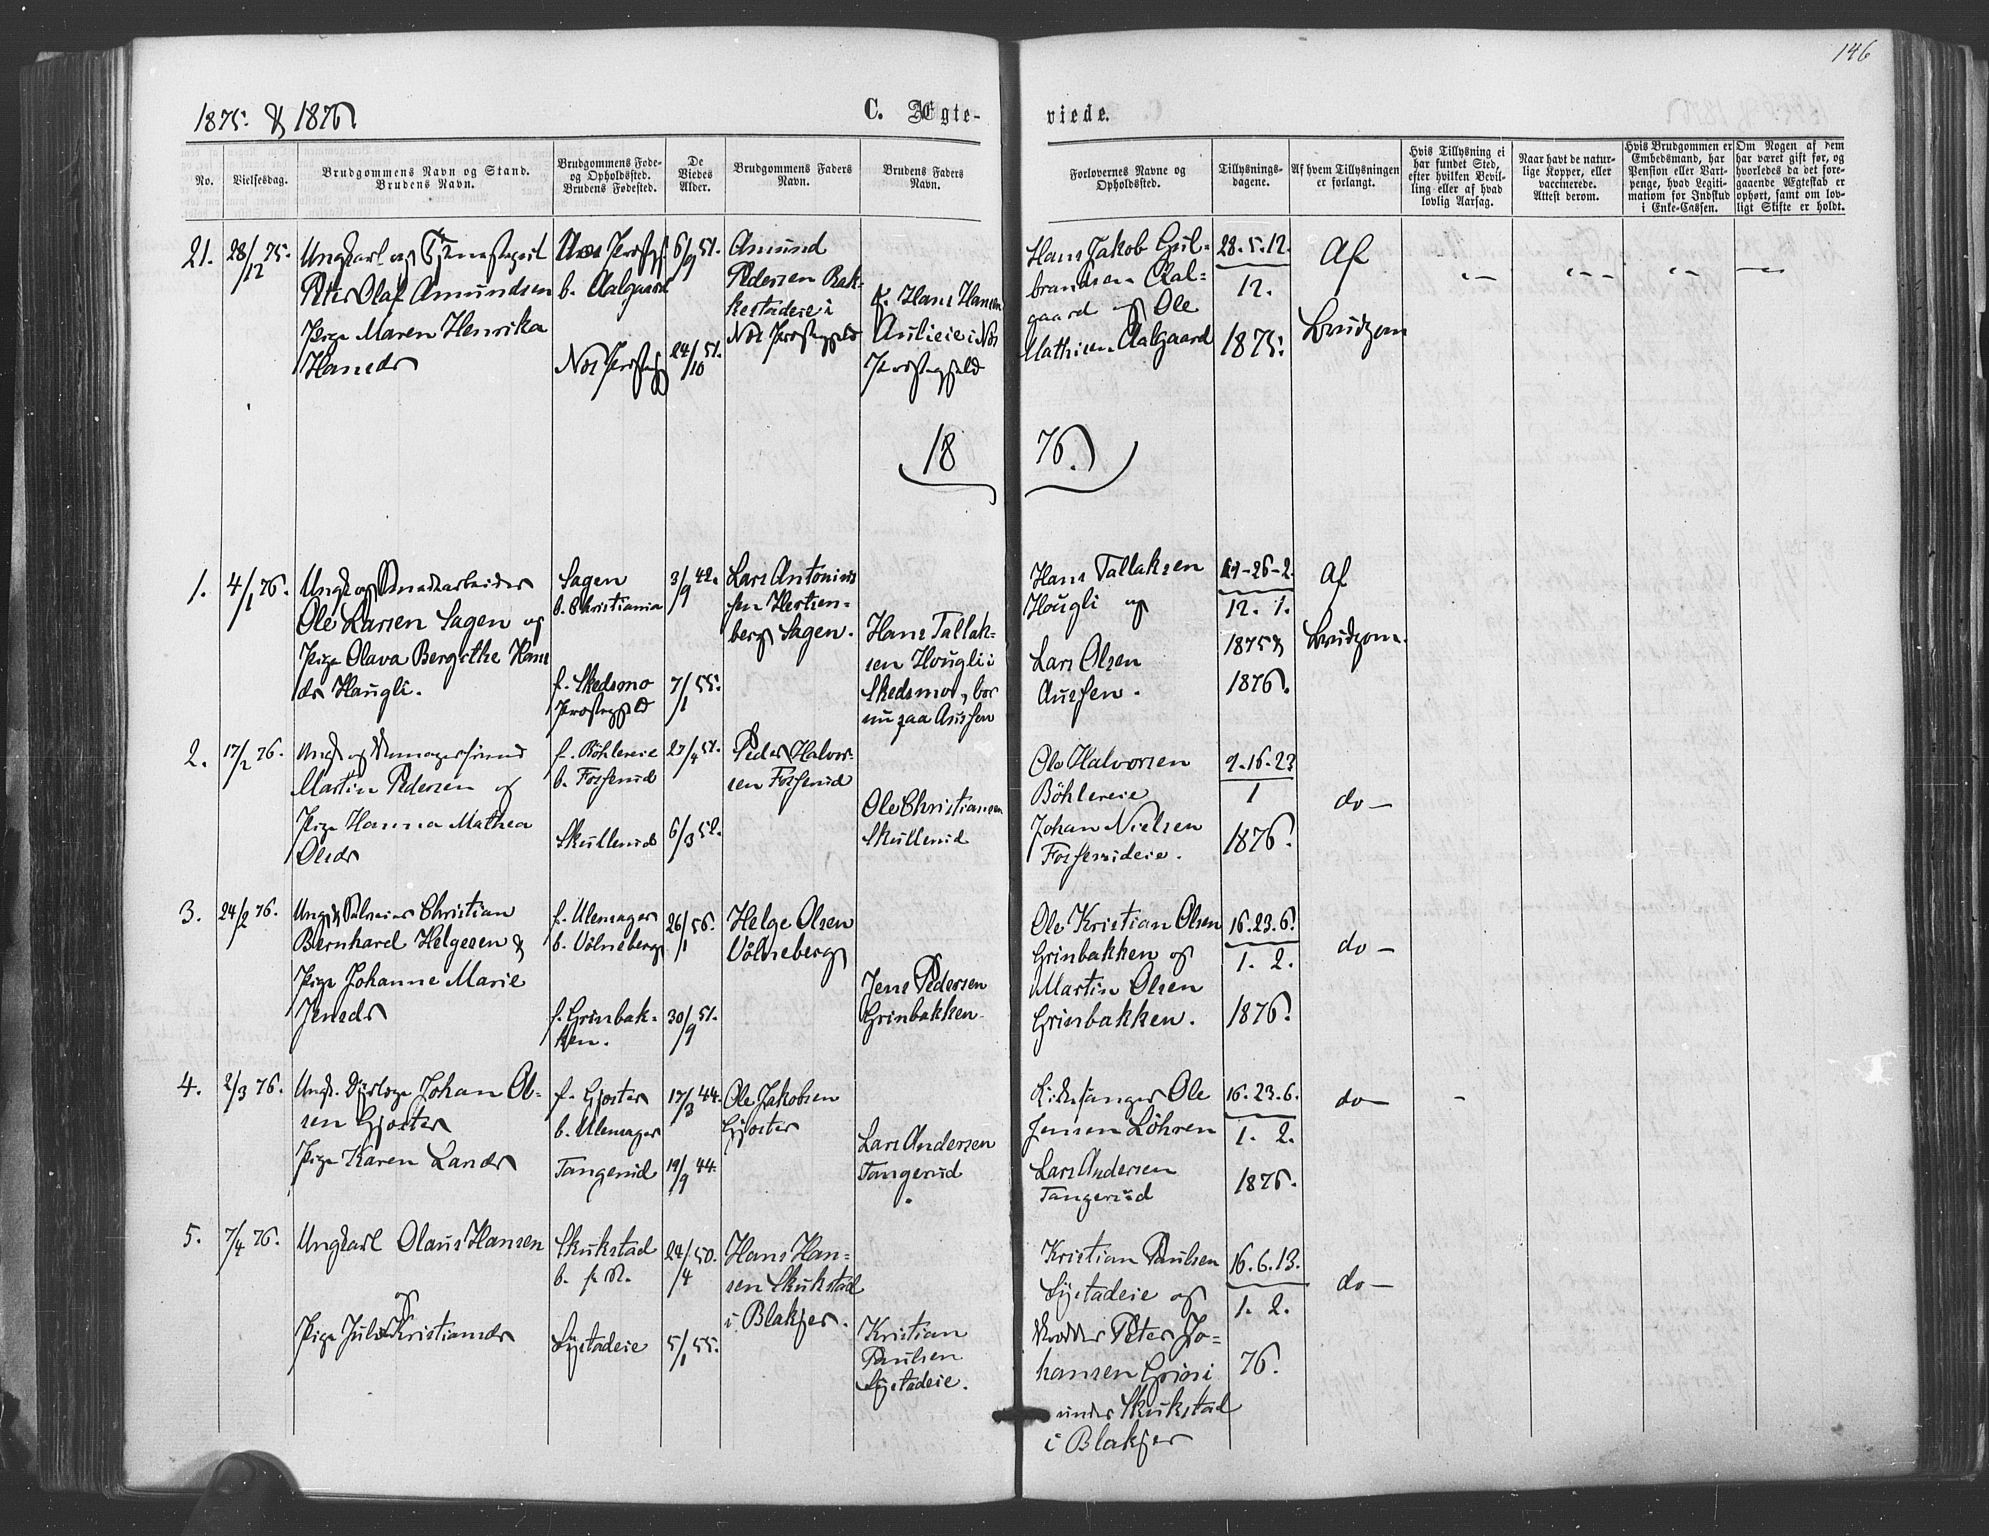 146
1875. & 1876.
C. Ægte-
viede.
No.
Vielsesdag.
Brudgommens Navn og Stand.
Brudens Navn.
Brudgommens Føde-
og Opholdssted.
Brudens Fødested.
De
Viedes
Alder.
Brudgommens Faders
Navn.
Brudens Faders
Navn.
Forlovernes Navne og
Opholdssted.
Tillysnings-
dagene.
Af hvem Tillysningen
er forlangt.
Hvis Tillysning ei
har fundet Sted,
efter hvilken Bevil-
ling eller af hvad
lovlig Aarsag.
Naar havt de natur-
lige Kopper, eller
vaccinerede.
Attest derom.
Hvis Brudgommen er
Embedsmand, har
Pension eller Vart-
penge, hvad Legiti-
mation for Indskud
i Enke-Cassen.
Om Nogen af dem
har været gift før, og
hvorledes da det fore-
gaaende Ægteskab er
ophørt, samt om lov-
ligt Skifte er holdt.
21.
28/12 75.
Ungkarl og
Peter Olaf Amundsen
Pige Maren Henrika
Hansdr
Næs Prestegj
b. Aalgaard
Nes Prestegj
6/9 51.
24/10 51.
Amund
Pedersen Bak-
kestadeie i
Nes Prestegjeld
f. Hans Hansen
Aulieie i Nes
Prestegjeld
Hans Jakob Gul-
brandsen Aal-
gaard og Ole
Mathisen Aalgaard
28.5.12.
12.
1875.
Af
Brudgom
18
76.
1.
4/1 76.
Ungk og Snedkerarbeider
Ole Larsen Sagen og
Pige Olava Bergithe Hans
dr Haugli.
Sagen
b. Christiania
f. Skedsmo
Prestegjeld
3/9 42.
7/1 55.
Lars Antonius
sen Hertsen-
berg Sagen.
Hans Tallak-
sen Hougli i
Skedsmo, bor
nu paa Aursen
Hans Tallaksen
Hougli og
Lars Olsen
Aursen.
19-26-2.
12. 1.
1875 &
1876.
Af
Brudgom.
2.
17/2 76.
Ungk og
Martin Pedersen og
Pige Hanna Mathea
Olsdr
f. Böhlereie
b. Fosserud
Skullerud
27/4 51.
6/3 52.
Peder Halvor-
sen Fosserud
Ole Christiansen
Skullerud
Ole Halvorsen
Böhlereie
Johan Nielsen
Fosserudeie.
9.16.23
1
1876.
do —
3.
24/2 76.
Ungk Christian
Bernhard Helgesen &
Pige Johanne Marie
Jensdr
f. Ulernager
b. Völneberg
f. Grinbak-
ken.
26/1 56.
30/9 51.
Helge Olsen
Völneberg
Jens Pedersen
Grinbakken
Ole Kristian Olsen
Grinbakken og
Martin Olsen
Grinbakken.
16.23.6.
1. 2.
1876.
do —
4.
2/3 76.
Ungk. Johan Ol-
sen Gjoster
Pige Karen Larsdr
f. Gjoster
b. Ulernager
Tangerud
17/3 44.
19/9 44.
Ole Jakobsen
Gjoster
Lars Andersen
Tangerud
Kirkesanger Ole
Jensen Löhren
Lars Andersen
Tangerud
16.23.6.
1. 2.
1876.
do —
5.
7/4 76.
Ungkarl Olaus Hansen
og
Pige Julie Kristiansdr
Skukstad
b.
Systadeie
24/4 50.
5/1 55.
Hans Han-
sen Skukstad
i Blakjer.
Kristian
Paulsen
Systadeie.
Kristian Paulsen
Systadeie og
Peter Jo-
hansen Grinsi
under Skukstad
i Blakjer
16.6.13.
1. 2.
76.
do —